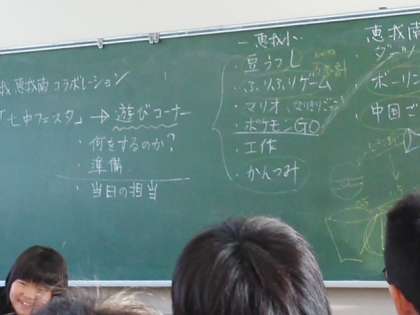 我 恵我南 コラボレーション
「七中フェスタ」→ 遊びコーナー
・何をするのか?
・準備
・当日の担当
恵我小
・豆うつし
・ふりふりゲーム
・マリオ
・ポケモンGO
・工作
・かんつみ
恵我南
・ボーリン
・中国